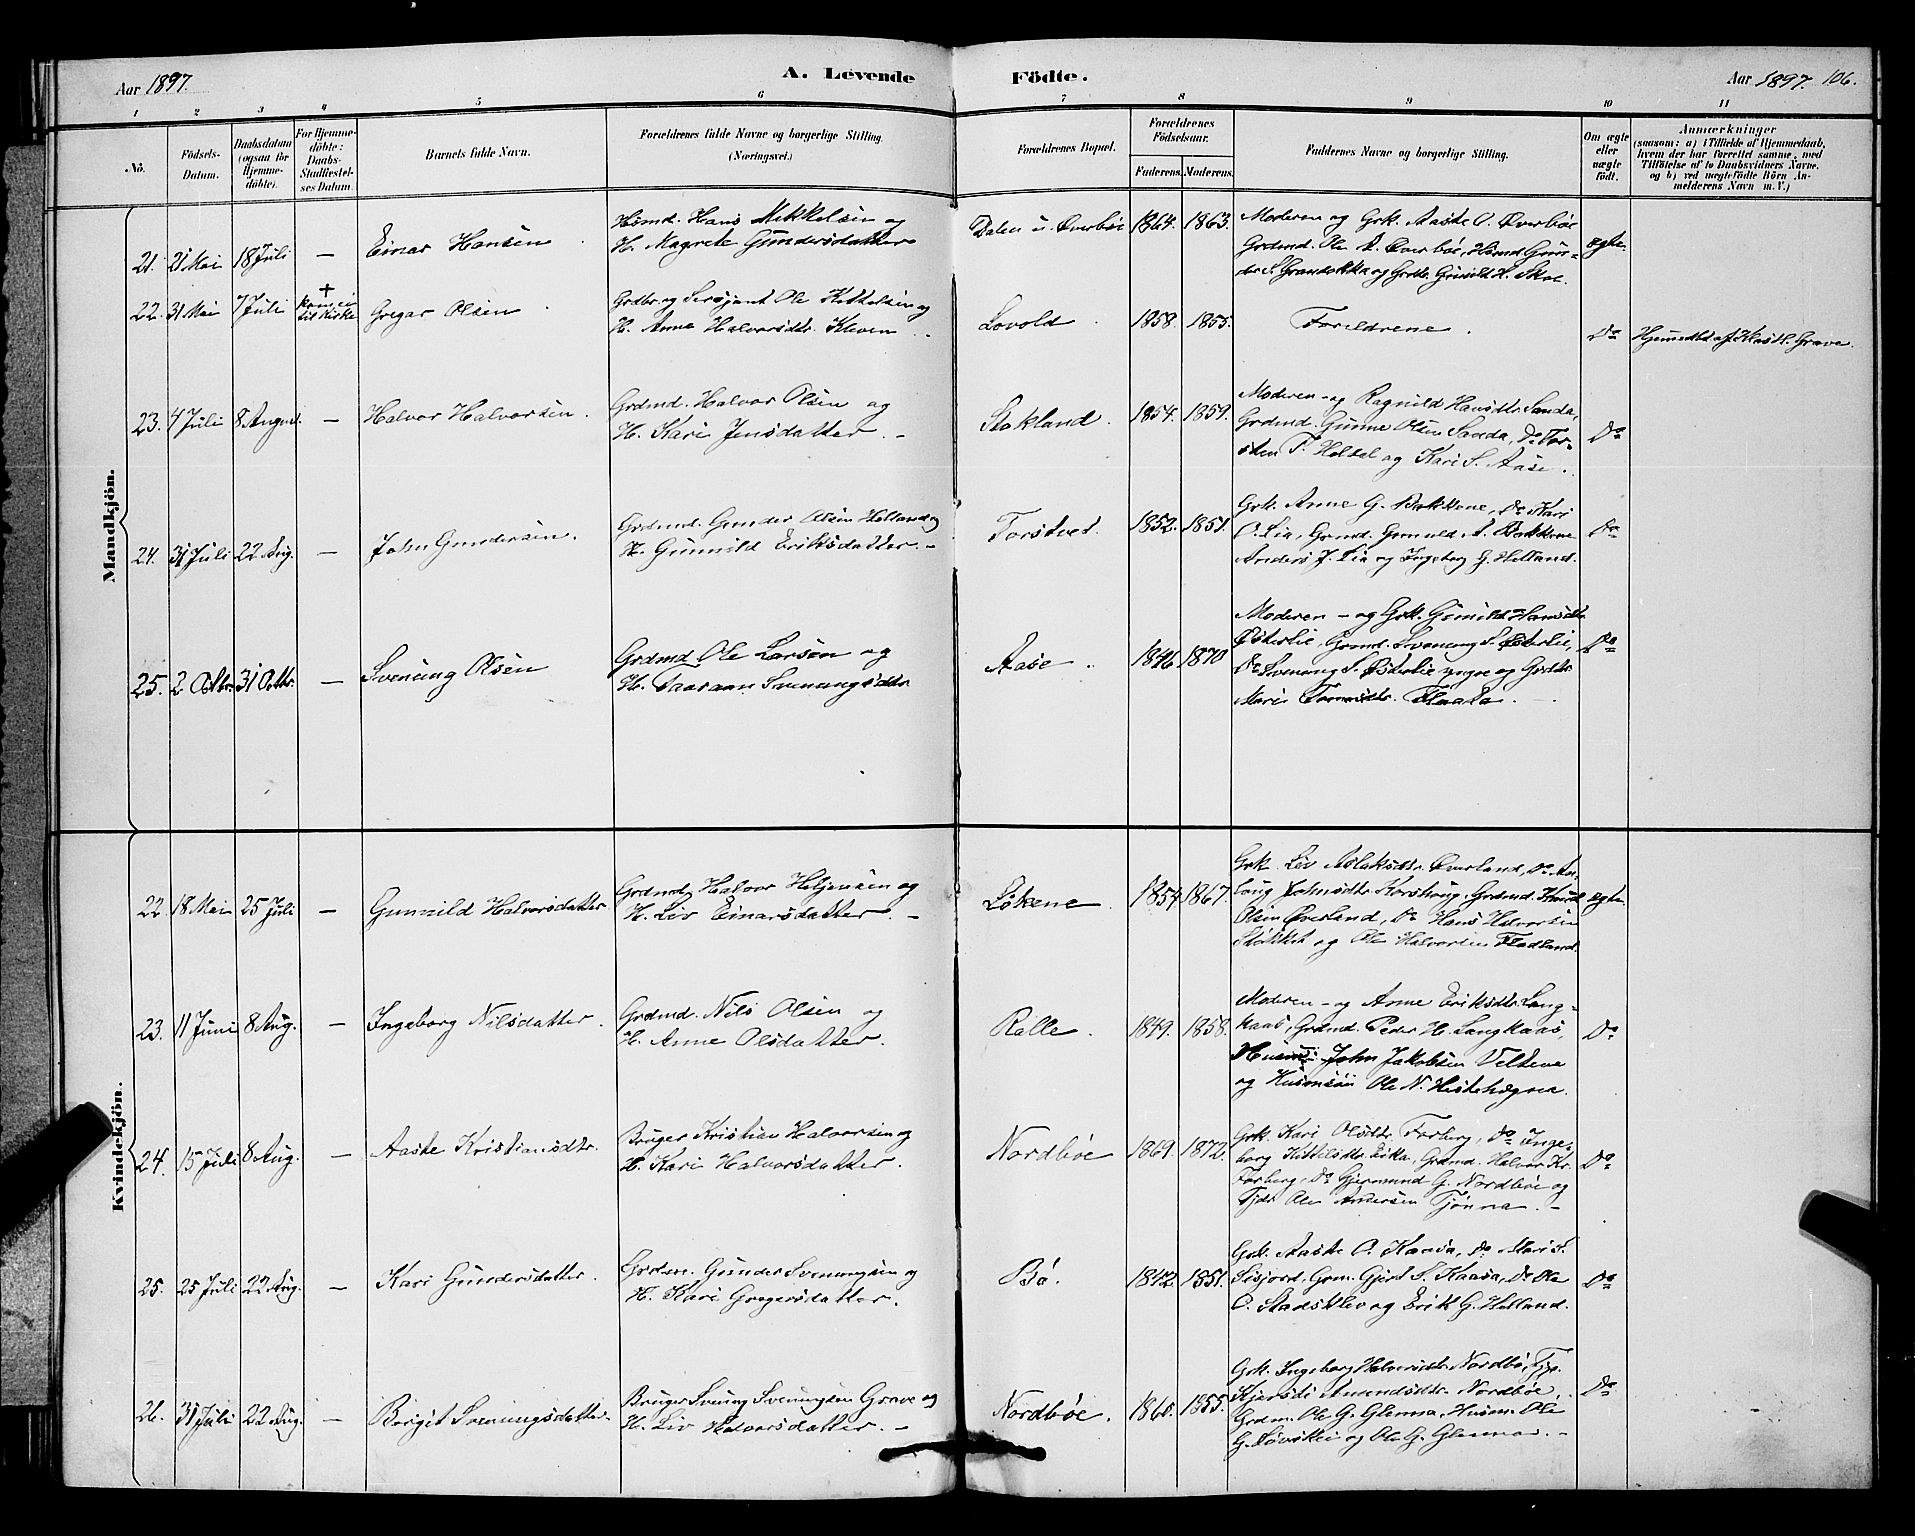 Aar 1897.
A. Levende Födte.
Aar 1897. 106.
1 2 3 4 5 6 7 8 9 10 11
No.
Födsels-
Datum.
Daabsdatum
(ogsaa for
Hjemme-
döbte).
For Hjemme-
döbte:
Daabs-
Stadfæstel-
ses Datum.
Barnets fulde Navn.
Forældrenes fulde Navne og borgerlige Stilling.
(Næringsvei.)
Forældrenes Bopæl.
Forældrenes
Födselsaar.
Faderens. Moderens.
Faddernes Navne og borgerlige Stilling.
Om ægte
eller
uægte
födt.
Anmærkninger
(saasom: a) i Tilfælde af Hjemmedaab,
hvem der har forrettet samme, med
Tilföielse af to Daabsvidners Navne.
og b) ved uægtefödte Börn An-
melderens Navn m. V.)
Mandkjön.
21. 21 Mai 18 Juli — Einar Hansen
Husmd. Hans Mikkelsen og
H. Magrete Gundersdatter
Dalen u. Øverbøe 1864. 1863.
Moderen og Grk. Aaste O. Øverbøe
Grdmd. Ole A. Øverbøe, Husmd Gun-
der S. Granbakka og Grdtr. Gunild H. Skoe.
ægte.
22. 31 Mai 7 Juli + kom ei
til Kirke
Gregar Olsen
Grdbr. og Sersjant Ole Kittelsen og
H. Anne Halvorsdtr. Kleven
Lovold 1858. 1855.
Foreldrene.
Do
Hjemmedbt af Kirkes. Grave.
23. 4 Juli 8 August. — Halvor Halvorsen.
Grdmd. Halvor Olsen og
H. Kari Jensdatter. –
Stokland. 1854. 1859.
Moderen – og Ragnild Hansdtr. Sanda,
Grdmd. Gunne Olsen Sanda, Do Tor-
sten T. Heltal og Kari S. Aase.
Do
24. 31 Juli 22 Aug. — John Gundersen.
Grdmd. Gunder Olsen Helland og
H. Gunnild Eriksdatter. –
Torstvet. 1852. 1851.
Grk. Anne G. Bakkene, Do Kari
O. Lia, Grmd. Gunuld A. Bakkene
Anders J. Lia og Ingeborg G. Helland.
Do
25. 2 Oktbr. 31 Oktbr. — Svenung Olsen
Grdmd. Ole Larsen og
H. Taaraan Svenungsdtr.
Aase 1846 1870
Moderen – og Grk. Gunild Hansdtr
Østerlie, Grmd. Svenung S. Østerlie,
Do Svenung S. Østerlie yngre og Grdtr.
Mari Tormodsdtr. Flaata. –
Do
Kvindekjön.
22. 18 Mai 25 Juli — Gunnild Halvorsdatter.
Grdmd. Halvor Heljensen og
H. Liv Einarsdatter. –
Løkene. 1854 1867.
Grk. Liv Aslaksdtr. Øverland, Do An-
laug Johnsdtr. Korshaug, Grdmd. Knud
Olsen Øverland, Do Hans Halvorsen
og Ole Halvorsen Fladland.
ægte.
23. 11 Juni 8 Aug. — Ingeborg Nilsdatter.
Grdmd. Nils Olsen og
H. Anne Olsdatter.
Ralle. 1849. 1858.
Moderen – og Anne Eriksdtr. Lang-
kaas, Grdmd. Peder H. Langkaas,
John Jakobsen Velteve
og Husmsøn Ole N. Hestehægna.
Do
24. 15 Juli 8 Aug. — Aaste Kristiansdtr.
Bruger Kristian Halvorsen og
H. Kari Halvorsdatter.
Nordbøe 1869. 1872.
Grk. Kari Olsdtr. Forberg, Do Inge-
borg Kittelsdtr. Eika, Grdmd. Halvor Kr.
Forberg, Do Gjermund G. Nordbøe og
Tjdr. Ole Andersen Tjønna. –
Do
25. 25 Juli 22 Aug. — Kari Gundersdatter.
Grdmd. Gunder Svenungsen og
H. Kari Gregersdatter.
Bø. 1842. 1851.
Grk. Aaste O. Kaasa, Do Mari S.
Sisjord, Grm. Gjert S. Kaasa, Do Ole
O. Stadskleiv og Erik G. Helland.
Do
26. 31 Juli 22 Aug. — Birgit Svenungsdatter.
Bruger Svenung Svenungsen Grave og
H. Liv Halvorsdatter. –
Nordbøe. 1860. 1855.
Grk. Ingeborg Halvorsdtr. Nordbø, Tjp.
Kjersti Amundsdtr. Nordbøe,
Grdm. Ole G. Glenna, Husm. Ole
G. Løvskei og Ole G. Glenna. –
Do